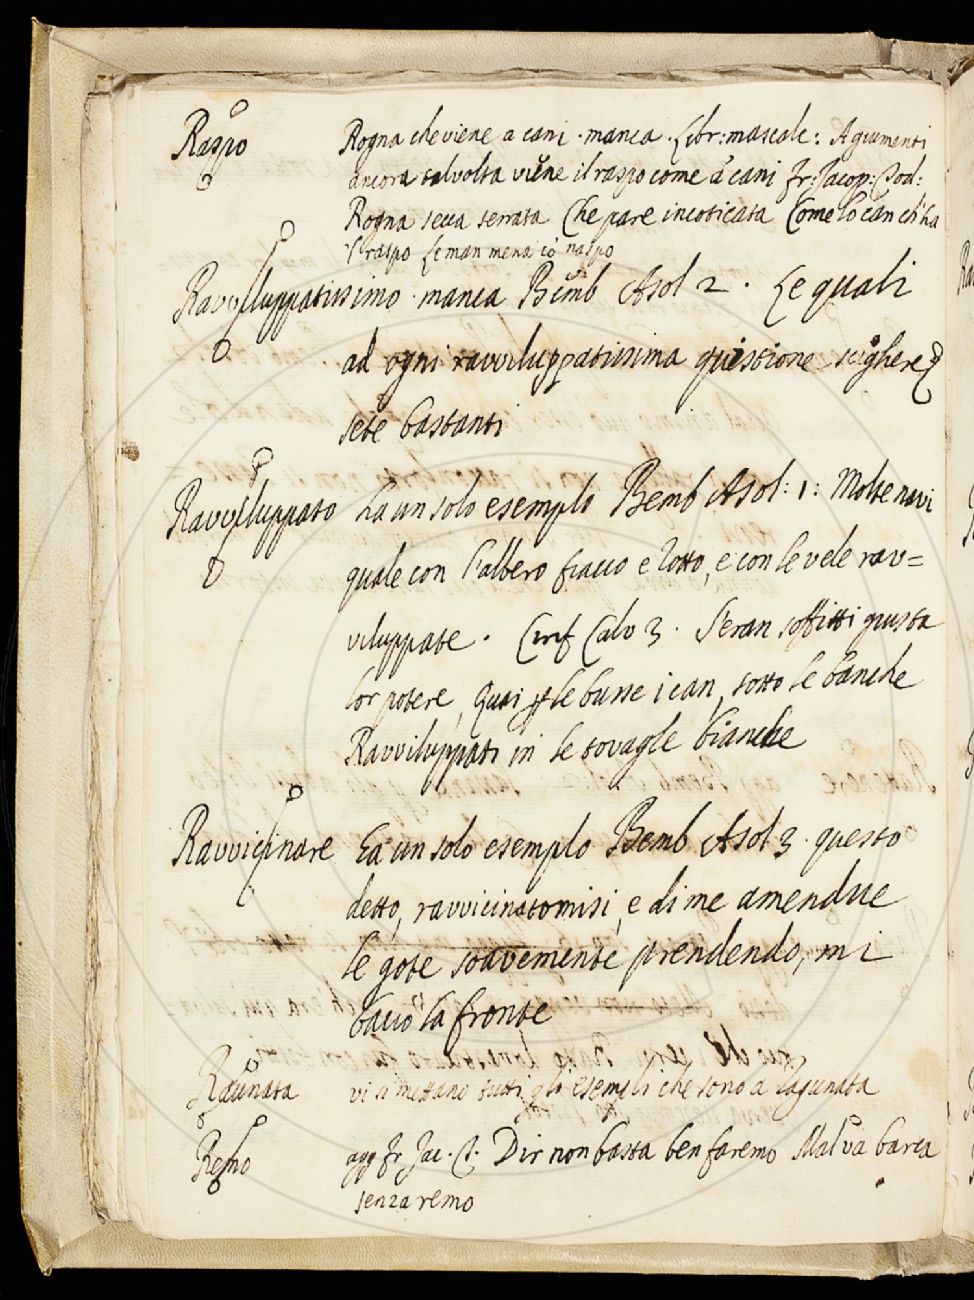 Raspo Rogna che viene a cani · manca · Libr: mascalc: A giumenti
ancora talvolta viene il raspo come a' cani Fr: Jacop: Tod:
Rogna secca serrata Che pare incoticata Come lo can ch'ha
'l raspo Le man mena cò naspo
Ravviluppatissimo · manca Bemb Asol 2 · Le quali
ad ogni ravviluppatissima quistione sciogliere
sete bastanti
Ravviluppato ha un solo esemplo Bemb Asol: 1: Molte navi
quale con l'albero fiacco e rotto, e con le vele rav=
viluppate · Cirif Calv 3 · S'eran soffitti giusta
lor potere, Quai le busse i can, sotto le banche
Ravviluppati in le tovagle bianche
Ravvicinare Ha un solo esemplo Bemb Asol 3 · questo
detto, ravvicinatomisi, e di me amendue
le gote soavemente prendendo, mi
baciò la fronte
Raunata vi si mettano tutti gli esempli che sono a ragunata
Remo agg Fr. Jac. T. Dir non basta ben faremo Mal va barca
senza remo